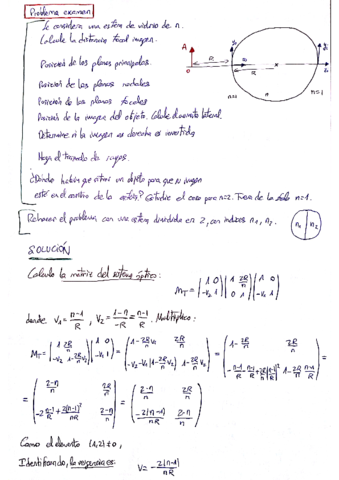 Problema examen
Se considera una esfera de vidrio de n.
Calcule la distancia focal imagen.
Posición de los planos principales
Posición de los planos nodales
Posición de los planos focales
Posición de la imagen del objeto. Calcule el aumento lateral
Determine si la imagen es derecha o invertida
Haga el trazado de rayos.
¿Dónde habría que situar un objeto para que su imagen
esté en el centro de la esfera? Estudie el caso para n=2. Fuera de la bola n=1.
Rehacer el problema con una esfera dividida en 2, con índices n₁, n₂.
n₁ n₂
A
R
R
O
n=1
n
n=1
SOLUCIÓN
Calculo la matriz del sistema óptico:
M_T = (1 0 / -V₂ 1) (1 2R/n / 0 1) (1 0 / -V₁ 1)
donde V₁ = (n-1)/R, V₂ = (1-n)/(-R) = (n-1)/R. Multiplico:
M_T = (1 2R/n / -V₂ 1-2R/n V₂) (1 0 / -V₁ 1) = (1-2R/n V₁ 2R/n / -V₂-V₁(1-2R/n V₂) 1-2R/n V₂) =
= ((2-n)/n 2R/n / -2(n-1)/R+2(n-1)²/nR (2-n)/n) = ((2-n)/n 2R/n / -2(n-1)/nR (2-n)/n)
Como el elemento (1,2) ≠ 0,
Identificando, la vergencia es V = -2(n-1)/nR